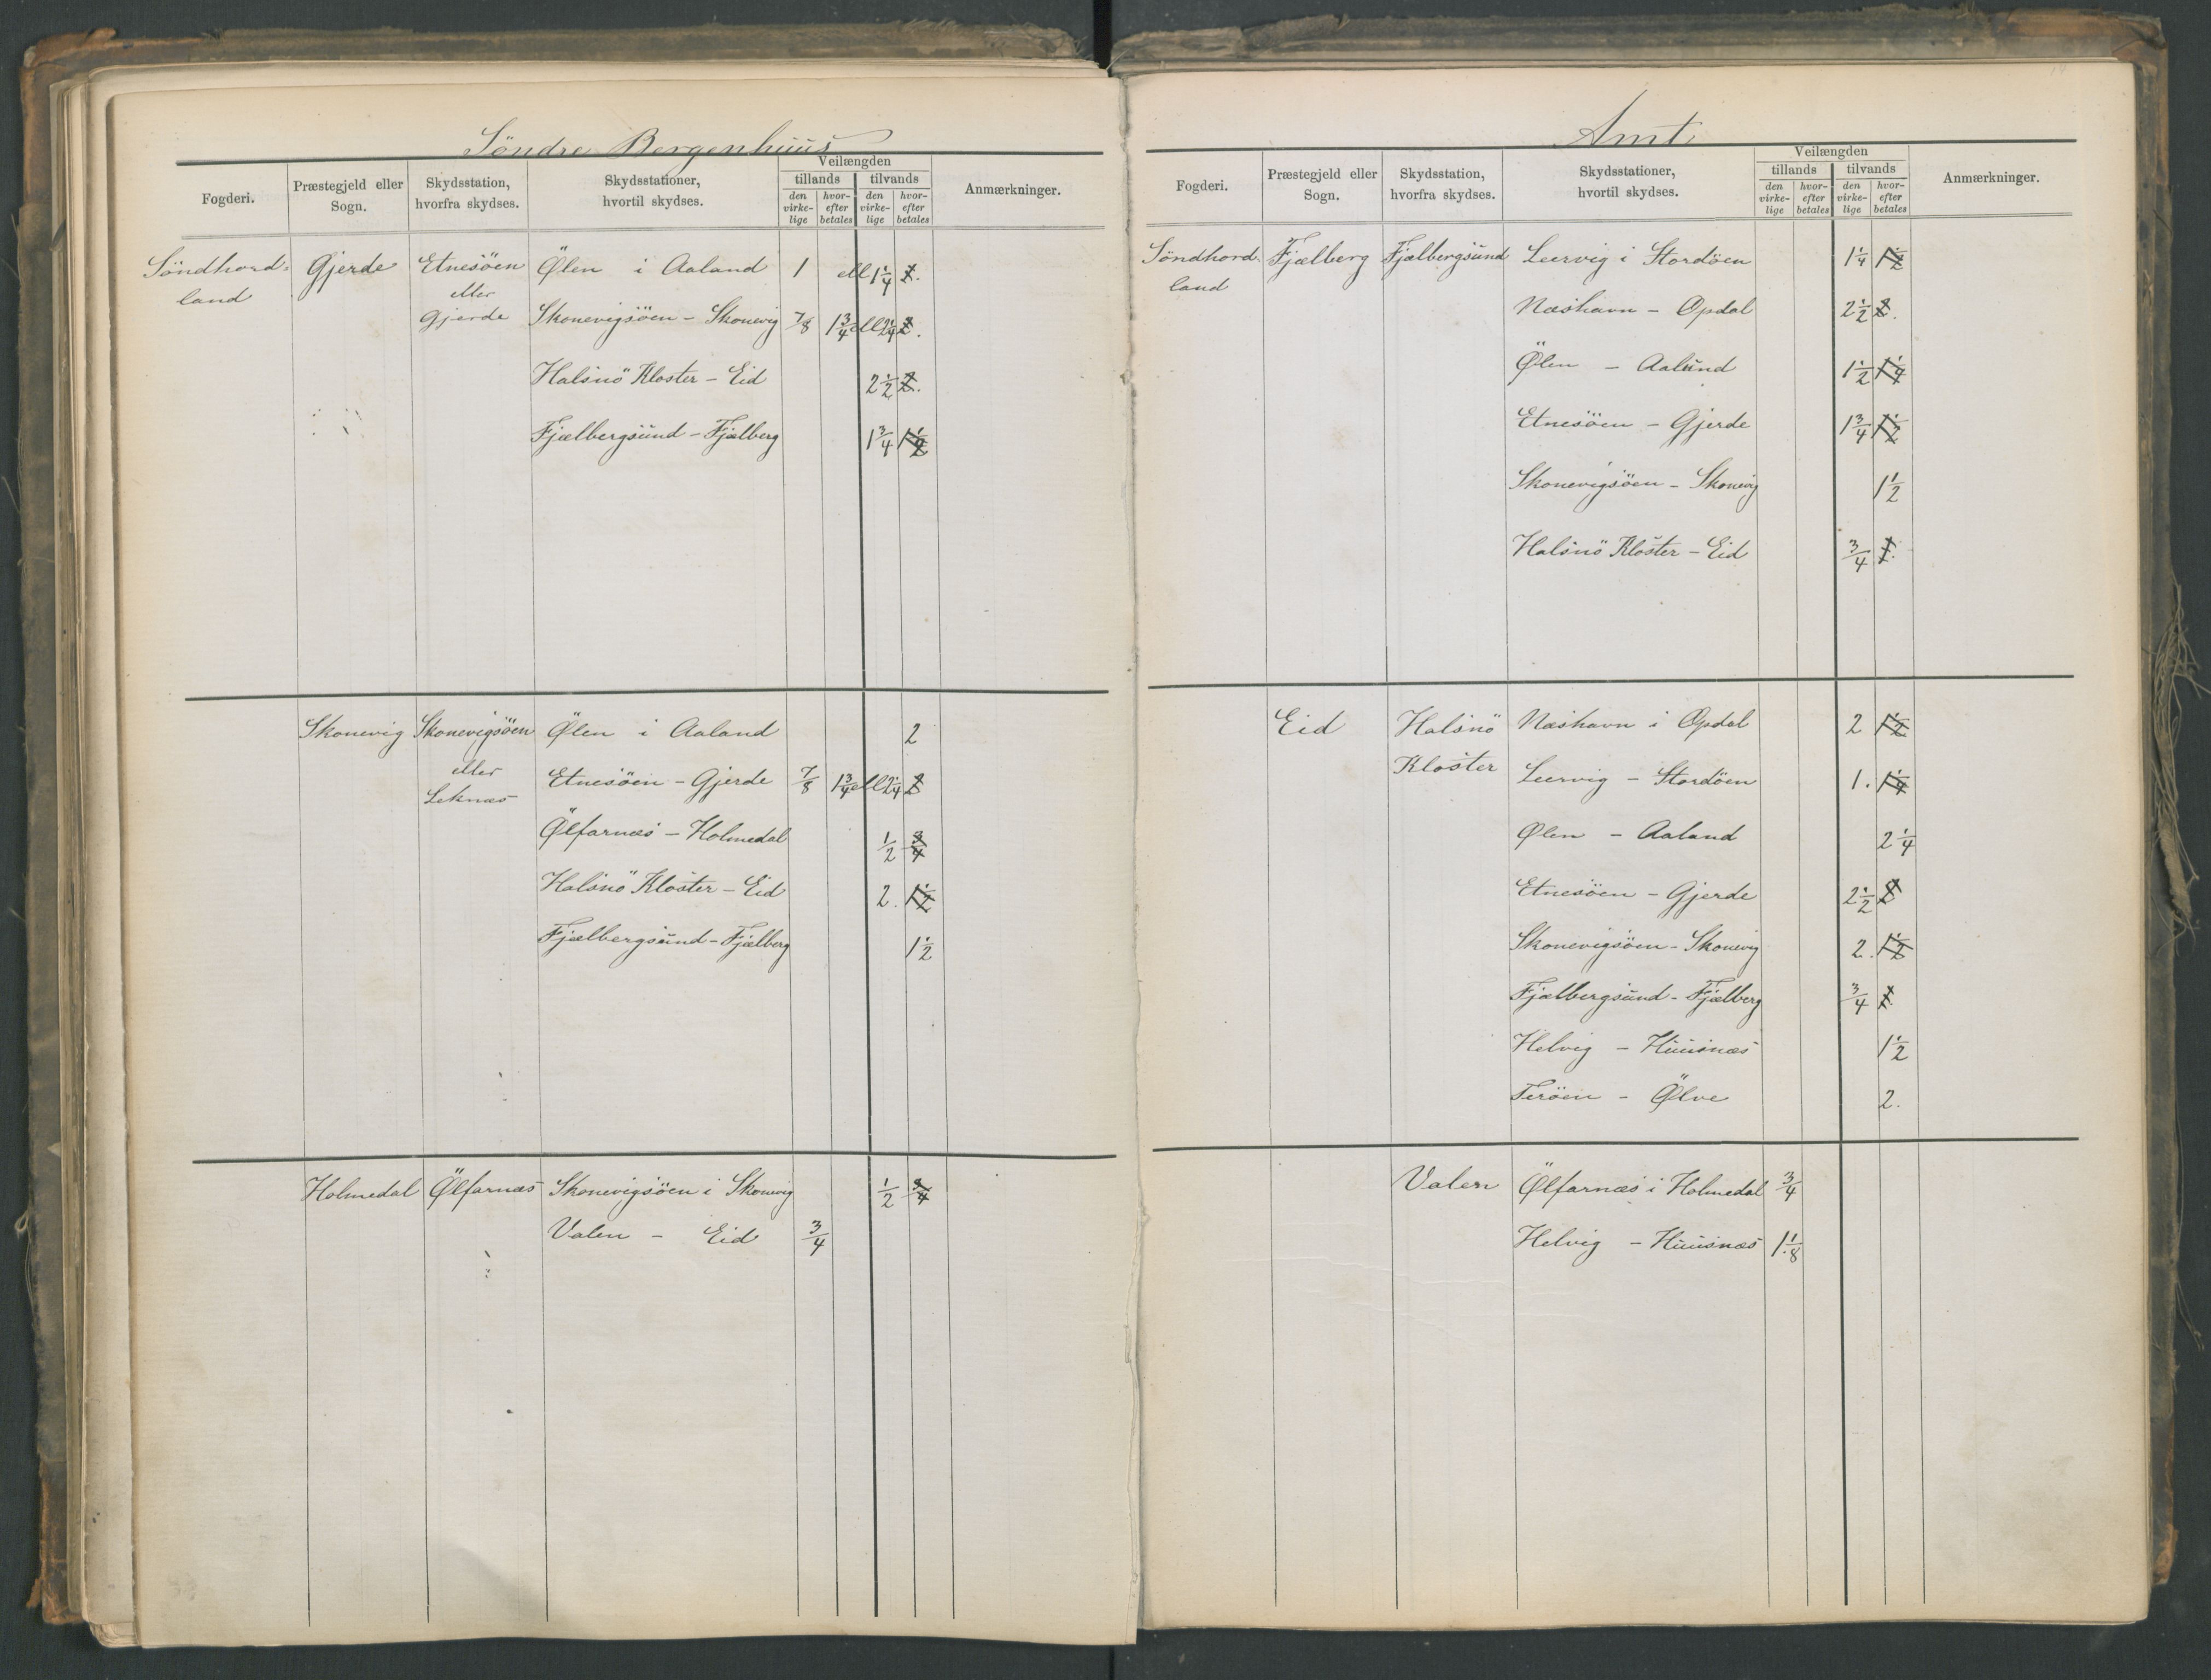 Söndre Bergenhuus
Fogderi. Præstegjeld eller Sogn. Skydsstation, hvorfra skydses. Skydsstationer, hvortil skydses. Veilængden tillands den virkelige hvorefter betales tilvands den virkelige hvorefter betales Anmærkninger.
Söndhord- Gjerde Etnesöen Ølen i Aaland 1 ell 1 1/4 1.
land eller
Gjerde Skonevigsöen - Skonevig 7/8 1 3/4 ell 2 1/4 2.
Halsnö Kloster - Eid 2 1/2 2.
Fjælbergsund - Fjælberg 1 3/4 1 1/2
Skonevig Skonevigsöen Ølen i Aaland 2
eller Etnesöen - Gjerde 7/8 1 3/4 ell 2 1/4 2
Leknæs
Ølfarnæs - Holmedal 1/2 3/4
Halsnö Kloster - Eid 2. 1 1/2
Fjælbergsund - Fjælberg 1 1/2
Holmedal Ølfarnæs Skonevigsöen i Skonevig 1/2 3/4
Valen - Eid 3/4
Amt
Fogderi. Præstegjeld eller Sogn. Skydsstation, hvorfra skydses. Skydsstationer, hvortil skydses. Veilængden tillands den virkelige hvorefter betales tilvands den virkelige hvorefter betales Anmærkninger.
Söndhord- Fjælberg Fjælbergsund Leervig i Stordöen 1 1/4 1 1/2
land
Næshavn - Opdal 2 1/2 2.
Ølen - Aaland 1 1/2 1 1/4
Etnesöen - Gjerde 1 3/4 1 1/2
Skonevigsöen - Skonevig 1 1/2
Halsnö Kloster - Eid 3/4 1.
Eid Halsnö Næshavn i Opdal 2 1 1/2
Kloster Leervig - Stordöen 1. 1 1/4
Ølen - Aaland 2 1/4
Etnesöen - Gjerde 2 1/2 2
Skonevigsöen - Skonevig 2. 1 1/2
Fjælbergsund - Fjælberg 3/4 1.
Helvig - Huusnæs 1 1/2
Teröen - Ølve 2.
Valen Ølfarnæs i Holmedal 3/4
Helvig - Huusnæs 1 1/8